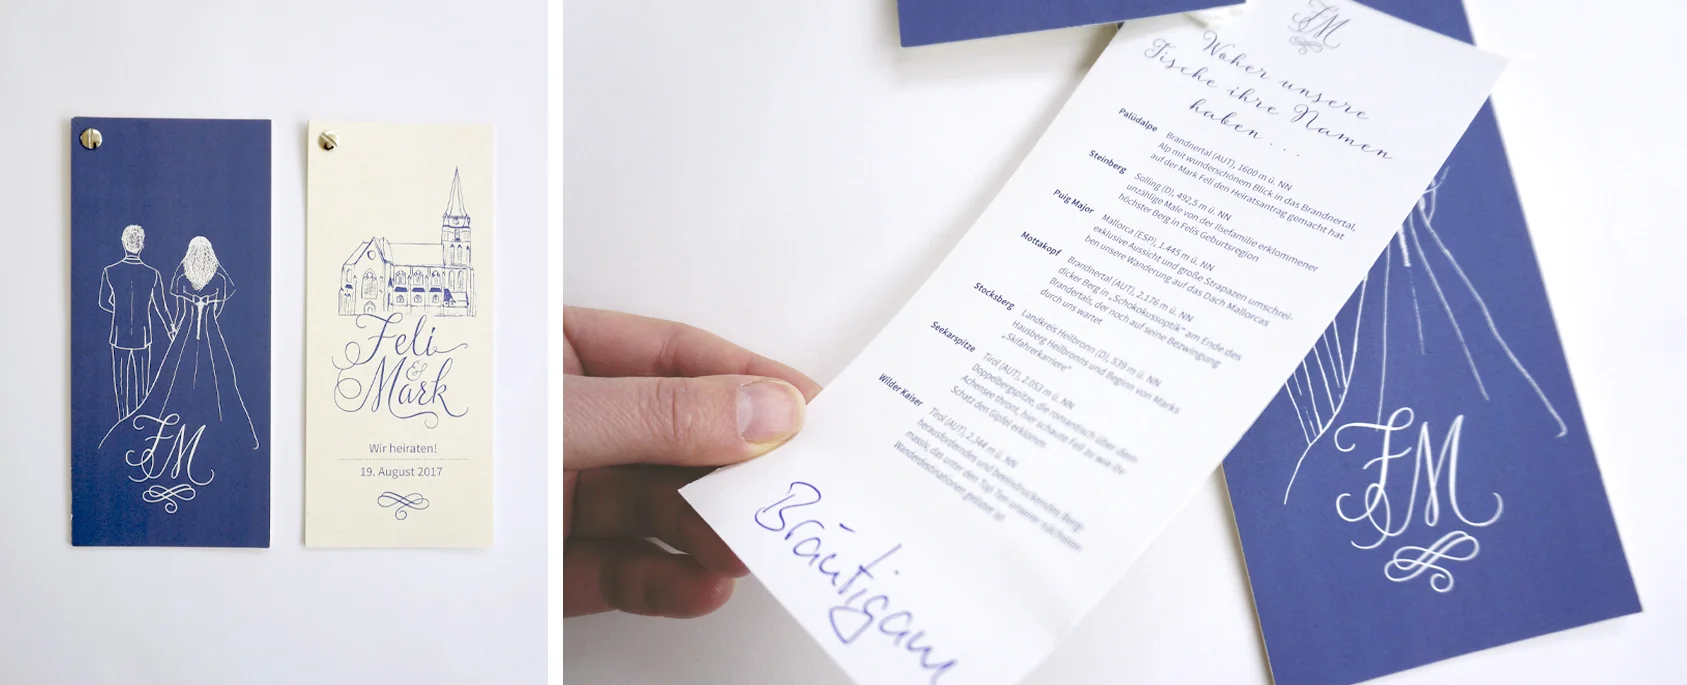 FM
Feli
&
Mark
Wir heiraten!
19. August 2017
FM
Woher unsere
Fische ihre Namen
haben . . .
Palüdalpe
Brandnertal (AUT), 1600 m ü. NN
Alp mit wunderschönem Blick in das Brandnertal,
auf der Mark Feli den Heiratsantrag gemacht hat
Steinberg
Solling (D), 492,5 m ü. NN
unzählige Male von der Ilsefamilie erklommener
höchster Berg in Felis Geburtsregion
Puig Major
Mallorca (ESP), 1.445 m ü. NN
exklusive Aussicht und große Strapazen umschrei-
ben unsere Wanderung auf das Dach Mallorcas
Mottakopf
Brandnertal (AUT), 2.176 m ü. NN
dicker Berg in „Schokussoptik“ am Ende des
Brandertals, der noch auf seine Bezwingung
durch uns wartet
Stocksberg
Landkreis Heilbronn (D), 539 m ü. NN
Hausberg Heilbronns und Beginn von Marks
„Skifahrerkarriere“
Seekarspitze
Tirol (AUT), 2.053 m ü. NN
Doppelbergspitze, die romantisch über dem
Achensee thront, hier schaute Feli zu wie ihr
Schatz den Gipfel erklomm
Wilder Kaiser
Tirol (AUT), 2.344 m ü. NN
herausforderndes und beeindruckendes Berg-
massiv, das unter den Top Ten unserer nächsten
Wanderdestinationen gelistet ist
Bräutigam
FM